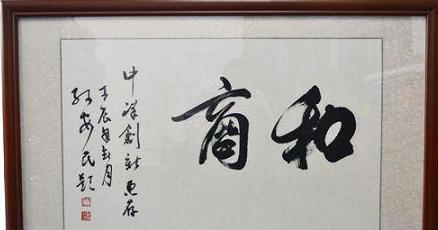 和商
中祥創新惠存
壬辰年 月
孙安民题